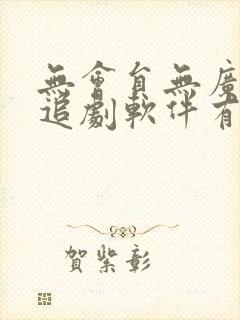 無會員無廣
追劇軟件有
賀紫彰